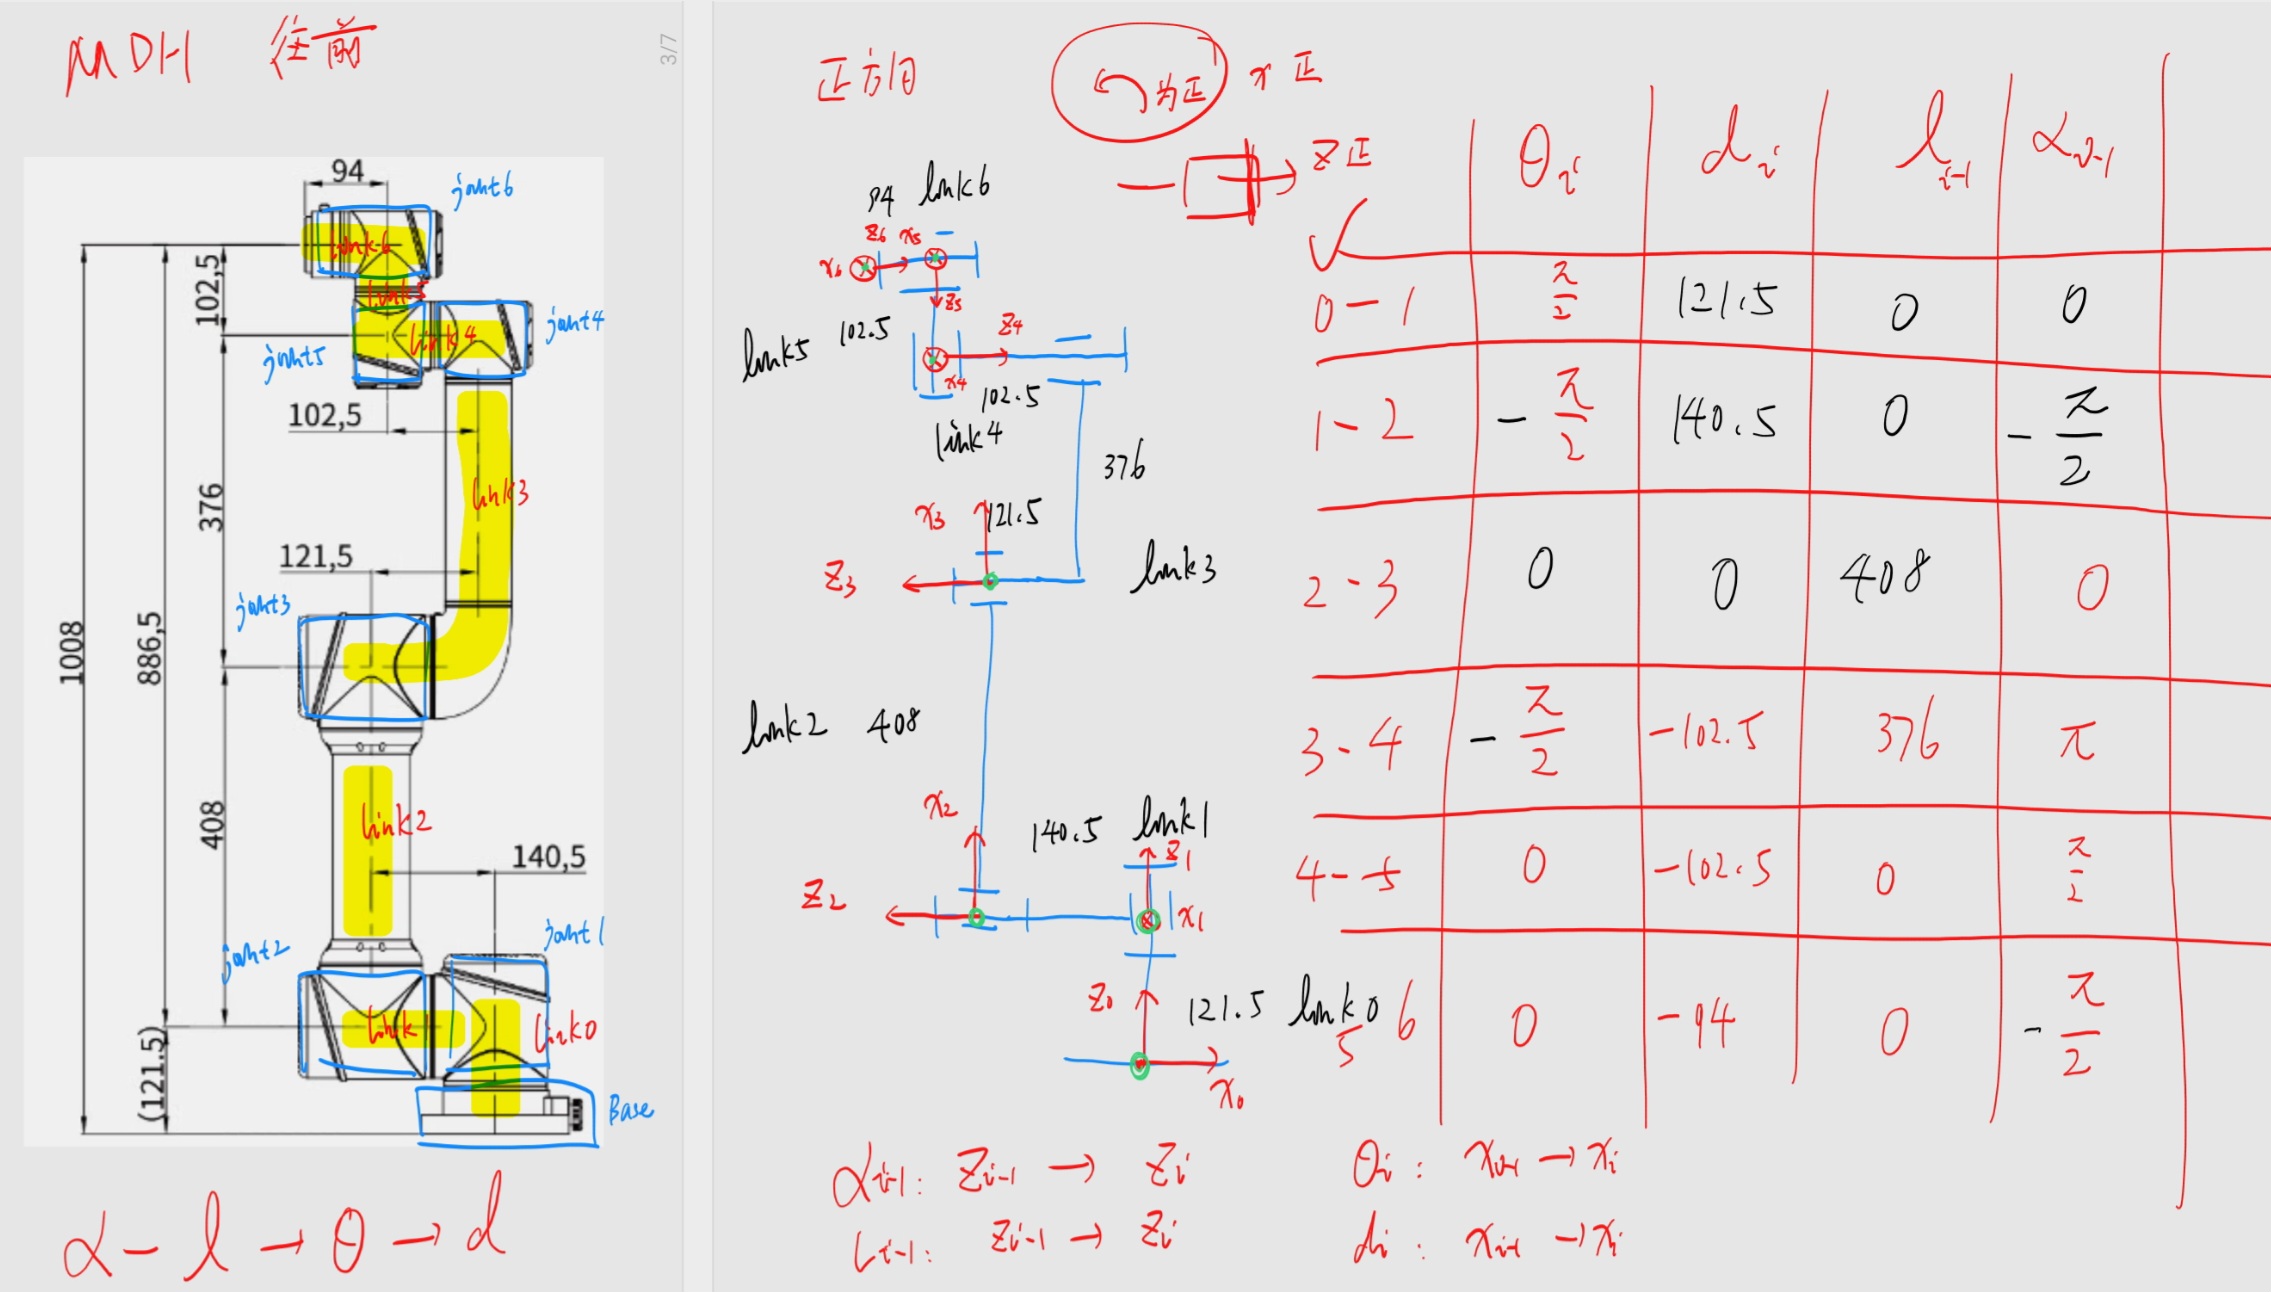 MDH 往前
3/7
94
joint6
link6
102,5
link5
link4
joint4
joint5
102,5
376
link3
121,5
joint3
1008
886,5
408
link2
140,5
joint2
joint1
link1
link0
(121.5)
Base
α - l → θ → d
正方向 为正 x 正
z 正
94 link6
z6 x5
x6
z5
link5 102.5
z4
x4
102.5
link4
376
x3 121.5
z3
link3
link2 408
x2
140.5 link1
z1
z2
x1
z0
121.5 link0
x0
θi di li-1 αi-1
0-1 π/2 121.5 0 0
1-2 -π/2 140.5 0 -π/2
2-3 0 0 408 0
3-4 -π/2 -102.5 376 π
4-5 0 -102.5 0 π/2
5 6 0 -94 0 -π/2
αi-1: zi-1 → zi θi: xi-1 → xi
Li-1: zi-1 → zi di: xi-1 → xi